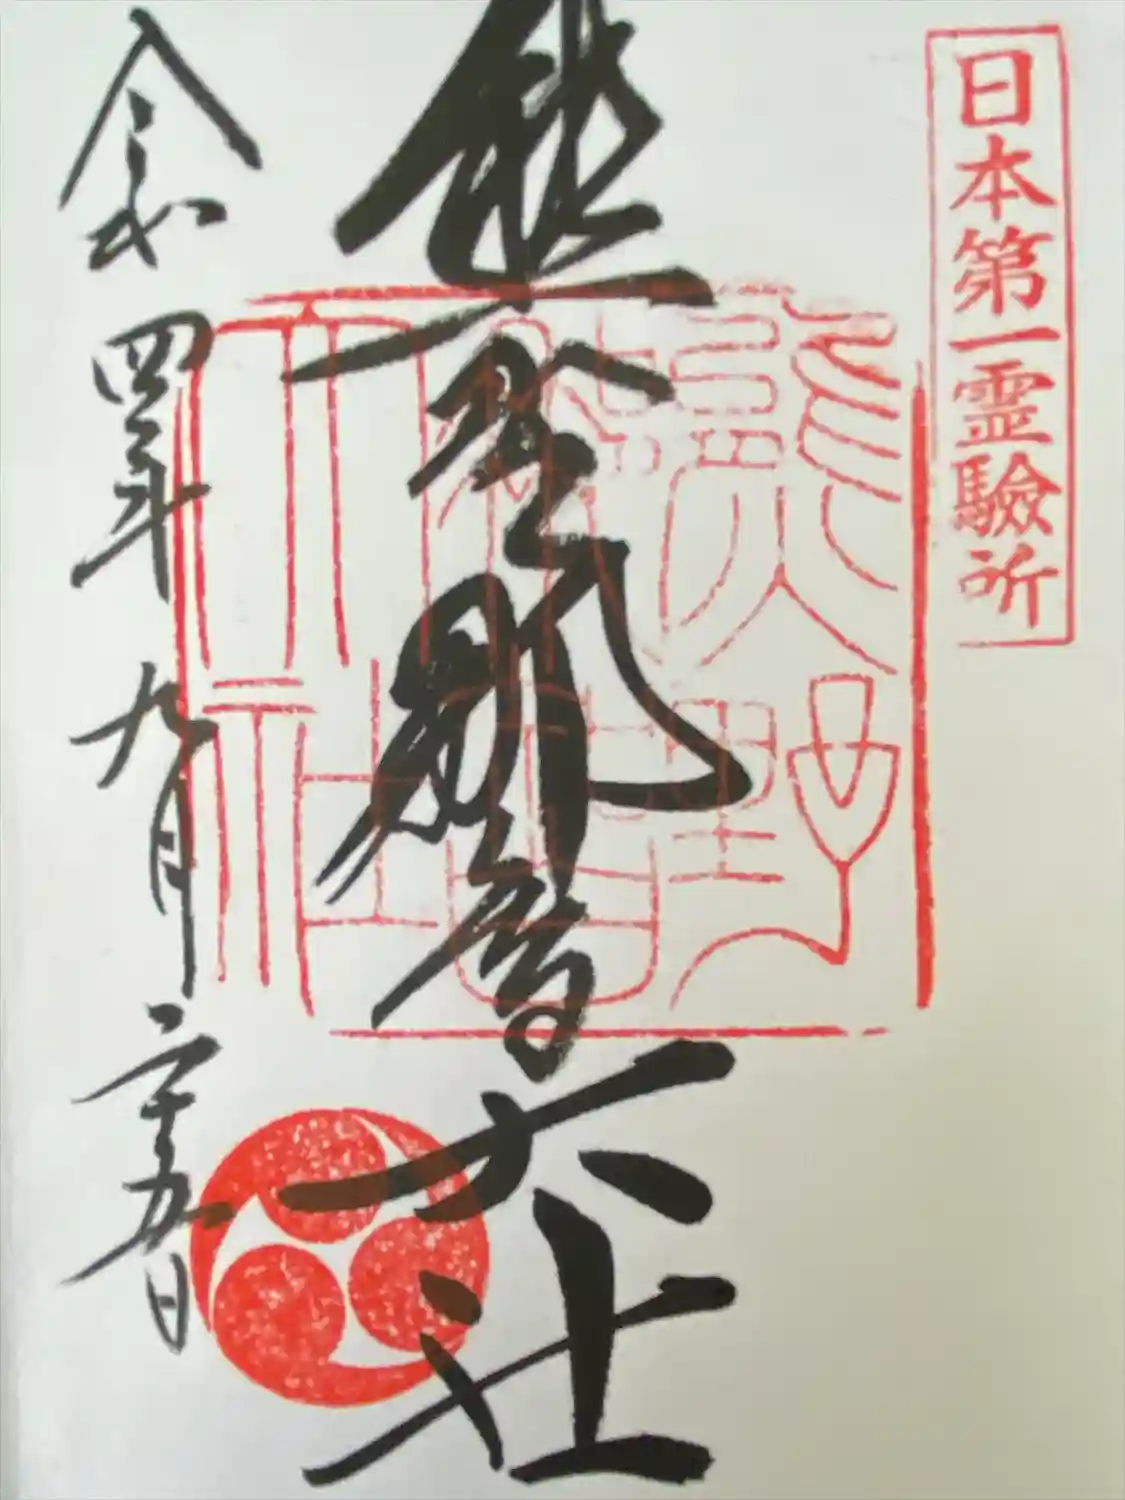 日本第一霊驗所
熊野那智大社
熊野那智大社
令和四年 九月二十五日